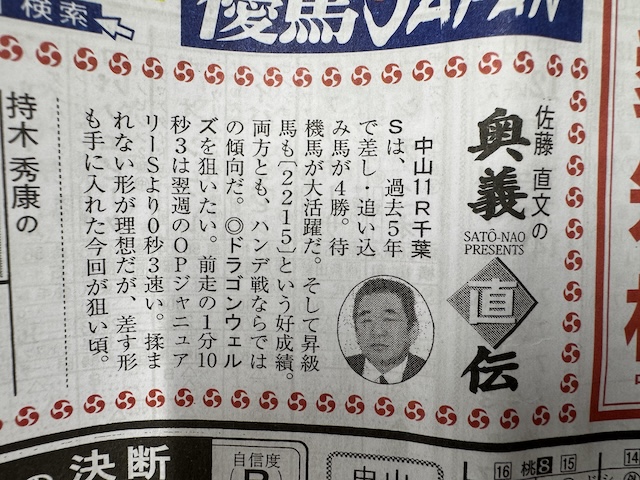 検索
優馬JAPAN
佐藤 直文の
奥義
SATŌ-NAO
PRESENTS
直
伝
中山11R千葉
Sは、過去5年
で差し・追い込
み馬が4勝。待
機馬が大活躍だ。そして昇級
馬も[2215]という好成績。
両方とも、ハンデ戦ならでは
の傾向だ。◎ドラゴンウェル
ズを狙いたい。前走の1分10
秒3は翌週のOPジャニュア
リーSより0秒3速い。揉ま
れない形が理想だが、差す形
も手に入れた今回が狙い頃。
持木 秀康の
の決断
自信度
B
中山
16
桃8
15
14